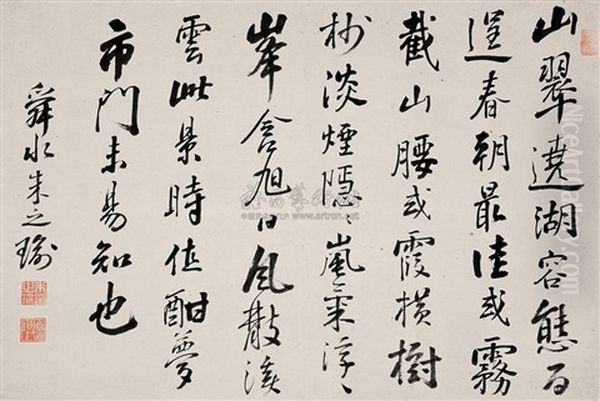 山翠遶湖容態百
逞春朝最佳或霧
截山腰或霞橫樹
杪淡煙隱嵐氣浮〻
峯含旭日風散溪
雲此景時值酣夢
市門未易知也
舜水朱之瑜
www.artron.net